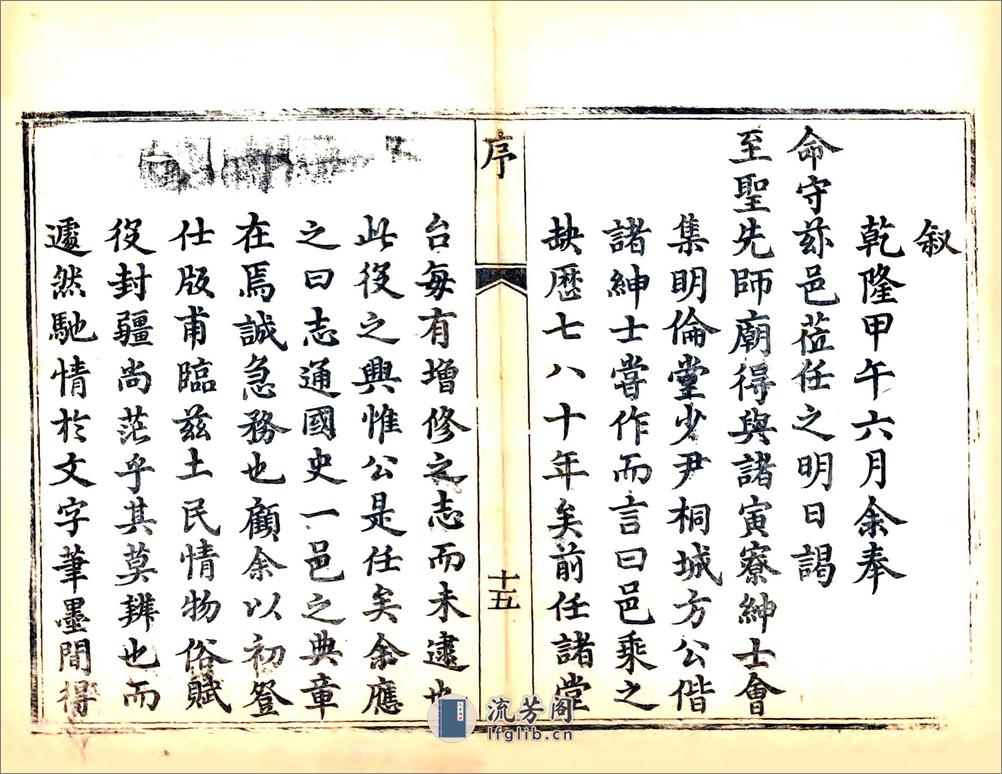 叙
乾隆甲午六月余奉
命守茲邑莅任之明日謁
至聖先師廟得與諸寅寮紳士會
集明倫堂少尹桐城方公偕
諸紳士嘗作而言曰邑乘之
缺歷七八十年矣前任諸堂
序
十五
台每有增修之志而未逮也
此役之興惟公是任矣余應
之曰志通國史一邑之典章
在焉誠急務也顧余以初登
仕版甫臨茲土民情物俗賦
役封疆尚茫乎其莫辨也而
遽然馳情於文字筆墨間得
流芳阁
lfglib.cn